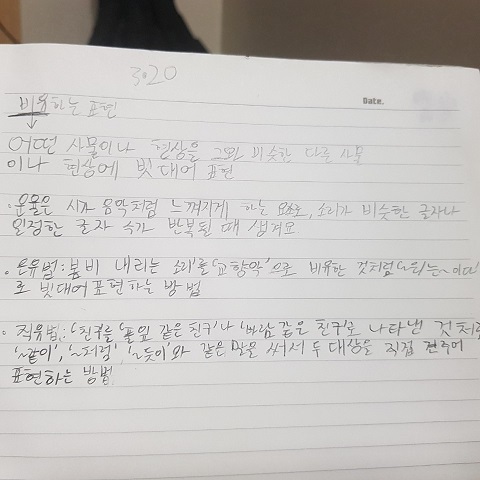 3.20
Date.
비유하는 표현
어떤 사물이나 현상을 그와 비슷한 다른 사물
이나 현상에 빗대어 표현
· 운율은 시가 음악처럼 느껴지게 하는 요소로, 소리가 비슷한 글자나
일정한 글자 수가 반복될 때 생겨요.
· 은유법: 봄비 내리는 소리'를 '교향악'으로 비유한 것처럼 '~은/는 ~이다'
로 빗대어 표현하는 방법
· 직유법: '친구'를 '풀잎 같은 친구'나 '바람 같은 친구'로 나타낸 것처
'~같이', '~처럼', '~듯이'와 같은 말을 써서 두 대상을 직접 견주어
표현하는 방법